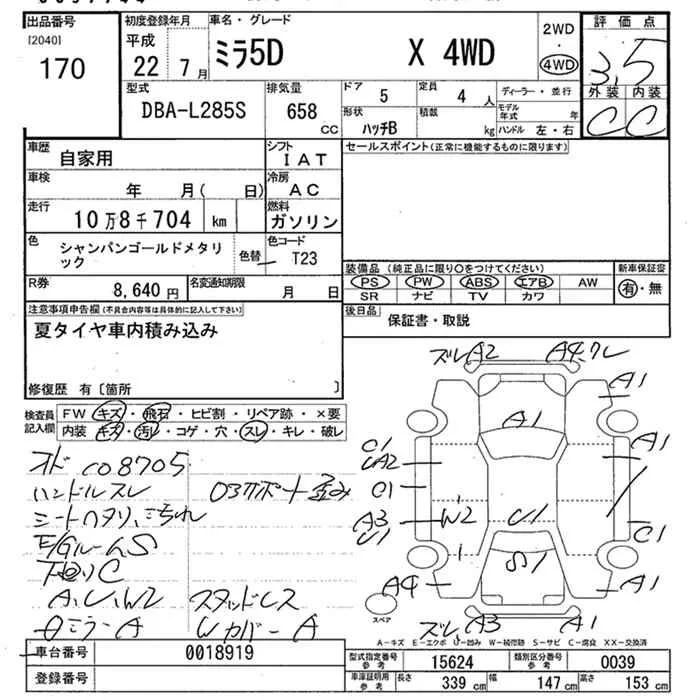 出品番号
[2040]
170
初度登録年月
平成
22 7月
車名・グレード
ミラ5D X 4WD
2WD
4WD
評価点
3.5
外装 内装
C C
型式
DBA-L285S
排気量
658 cc
ドア 5
形状 ハッチB
定員 4 人
積載 kg
ディーラー・並行
モデル年式 年
ハンドル 左・右
車歴
自家用
シフト
IAT
車検
年 月( 日)
冷房
AC
走行
10万8千704 km
燃料
ガソリン
色
シャンパンゴールドメタリック
色替
色コード
T23
R券
8,640円
名変通知期限
月 日
セールスポイント(正常に機能するものに限ります)
装備品 (純正品に限り〇をつけてください)
PS PW ABS エアB AW
SR ナビ TV カワ
新車保証書
有・無
後日品
保証書・取説
注意事項申告欄(不具合内容等は具体的に記入して下さい)
夏タイヤ車内積み込み
修復歴 有〔箇所 〕
検査員記入欄
FW キズ・飛石・ヒビ割・リペア跡・×要
内装 キズ・汚レ・コゲ・穴・スレ・キレ・破レ
ハンドルスレ
E/GルームS
下回りC
A,U,W2 スタッドレス
ミラーA WカバーA
ズレA2
A1
A1
A1
U1
A2
A3
U1
W2
U1
C1
S1
A4
A1
ズレA3
A1
スペア
A-キズ E-エクボ U-凹み W-補修跡 S-サビ C-腐食 XX-交換済
車台番号
0018919
登録番号
型式指定番号 参考
15624
類別区分番号 参考
0039
車庫証明用 参考
長さ 339 cm
幅 147 cm
高さ 153 cm